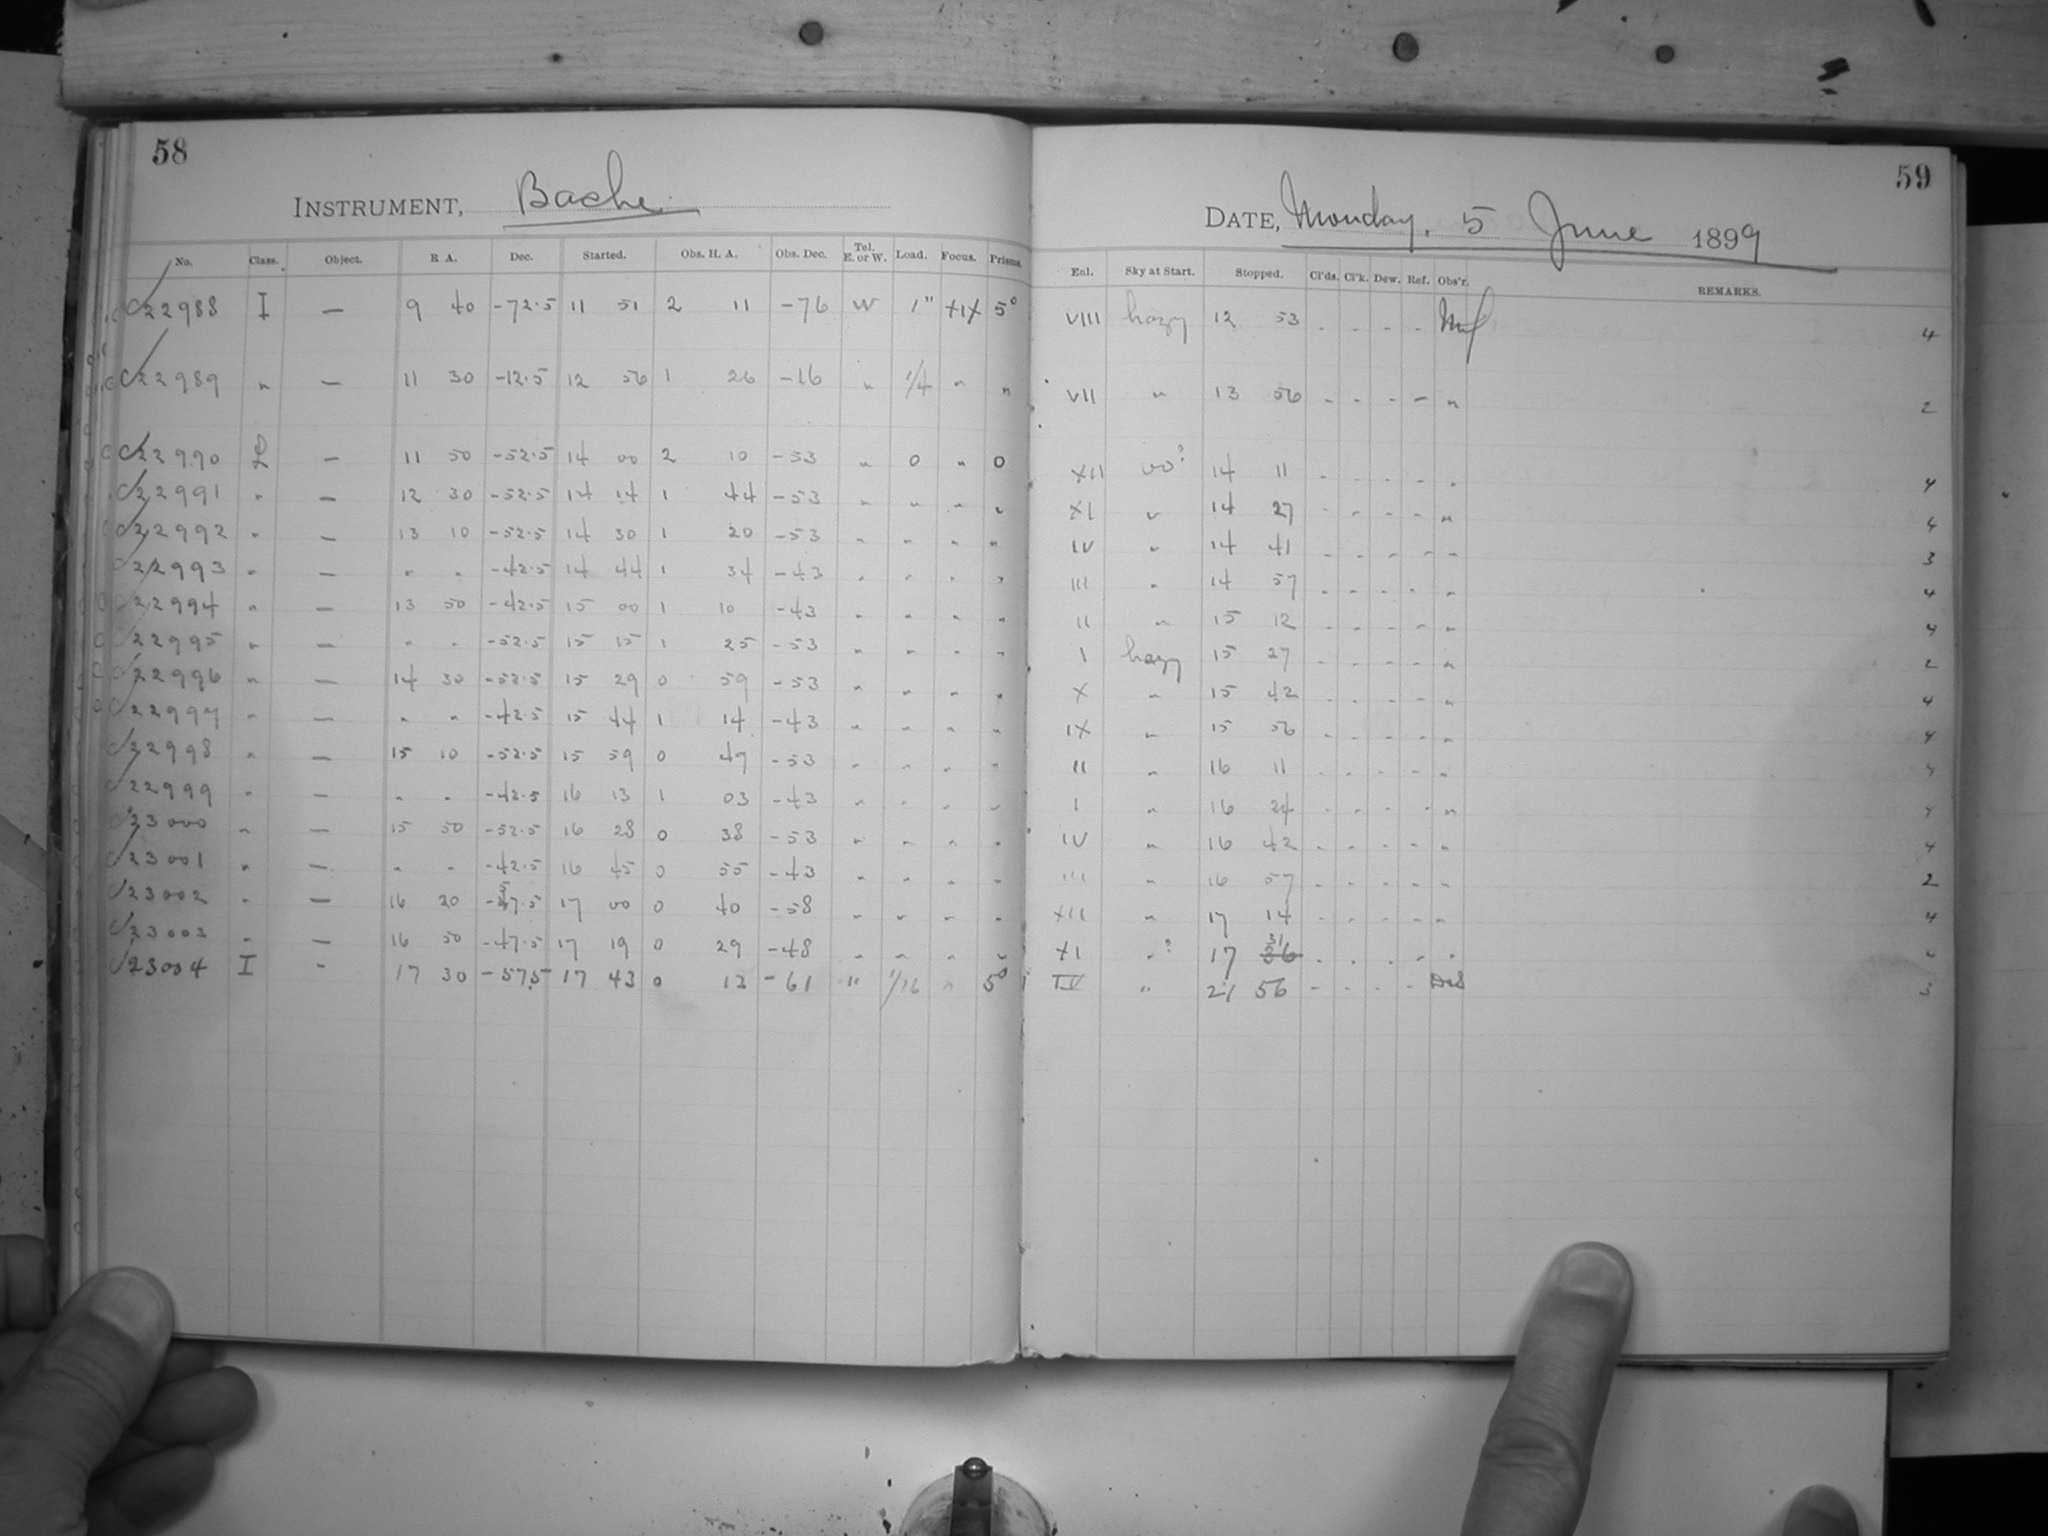 58
59
INSTRUMENT, Bache
DATE, Monday, 5 June 1899
No. Class. Object. R A. Dec. Started. Obs. H. A. Obs. Dec. Tel. E. or W. Load. Focus. Prisms. Enl. Sky at Start. Stopped. Cl'ds. Cl'k. Dew. Ref. Obs'r. REMARKS.
C22988 I — 9 40 -72.5 11 51 2 11 -76 W 1" XIX 5° VIII hazy 12 53 - - - - 4
C22989 " — 11 30 -12.5 12 56 1 26 -16 " 1/4 " " VII " 13 56 - - - - " 2
C22990 L — 11 50 -52.5 14 00 2 10 -53 " 0 " 0 XII 00? 14 11 - - - - " 4
C22991 " — 12 30 -52.5 14 14 1 44 -53 " " " " XI " 14 27 - - - - " 4
C22992 " — 13 10 -52.5 14 30 1 20 -53 " " " " IV " 14 41 - - - - " 3
C22993 " — " " -42.5 14 44 1 34 -43 " " " " III " 14 57 - - - - " 4
C22994 " — 13 50 -42.5 15 00 1 10 -43 " " " " II " 15 12 - - - - " 4
C22995 " — " " -52.5 15 15 1 25 -53 " " " " I hazy 15 27 - - - - " 2
C22996 " — 14 30 -52.5 15 29 0 59 -53 " " " " X " 15 42 - - - - " 4
C22997 " — " " -42.5 15 44 1 14 -43 " " " " IX " 15 56 - - - - " 4
C22998 " — 15 10 -52.5 15 59 0 49 -53 " " " " II " 16 11 - - - - " 4
C22999 " — " " -42.5 16 13 1 03 -43 " " " " I " 16 24 - - - - " 4
C23000 " — 15 50 -52.5 16 28 0 38 -53 " " " " IV " 16 42 - - - - " 4
C23001 " — " " -42.5 16 45 0 55 -43 " " " " III " 16 57 - - - - " 2
C23002 " — 16 20 -57.5 17 00 0 40 -58 " " " " XII " 17 14 - - - - " 4
C23003 " — 16 50 -47.5 17 19 0 29 -48 " " " " XI "? 17 31 36 - - - - "
C23004 I - 17 30 -57.5 17 43 0 13 -61 " 1/16 " 5° IV " 21 56 - - - - 3